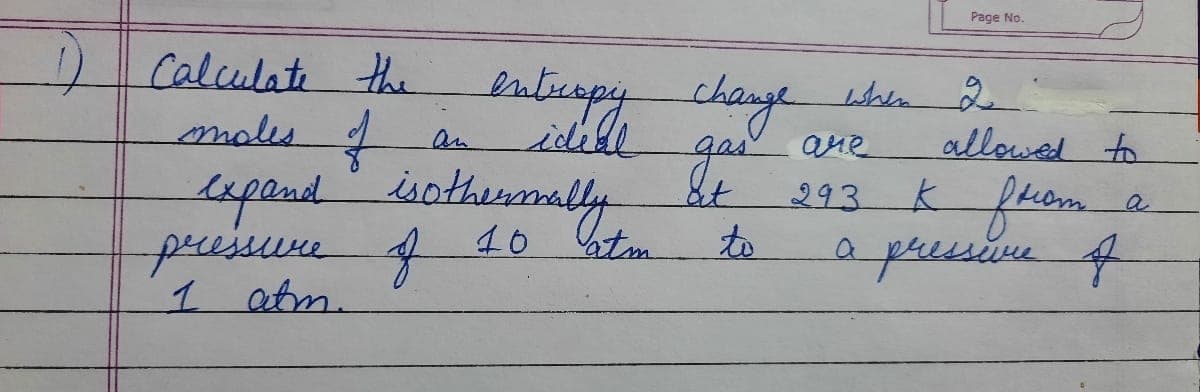 Page No.
1) Calculate the entropy change when 2
moles of an ideal gas are allowed to
expand isothermally at 293 K from a
pressure of 10 atm to a pressure of
1 atm.